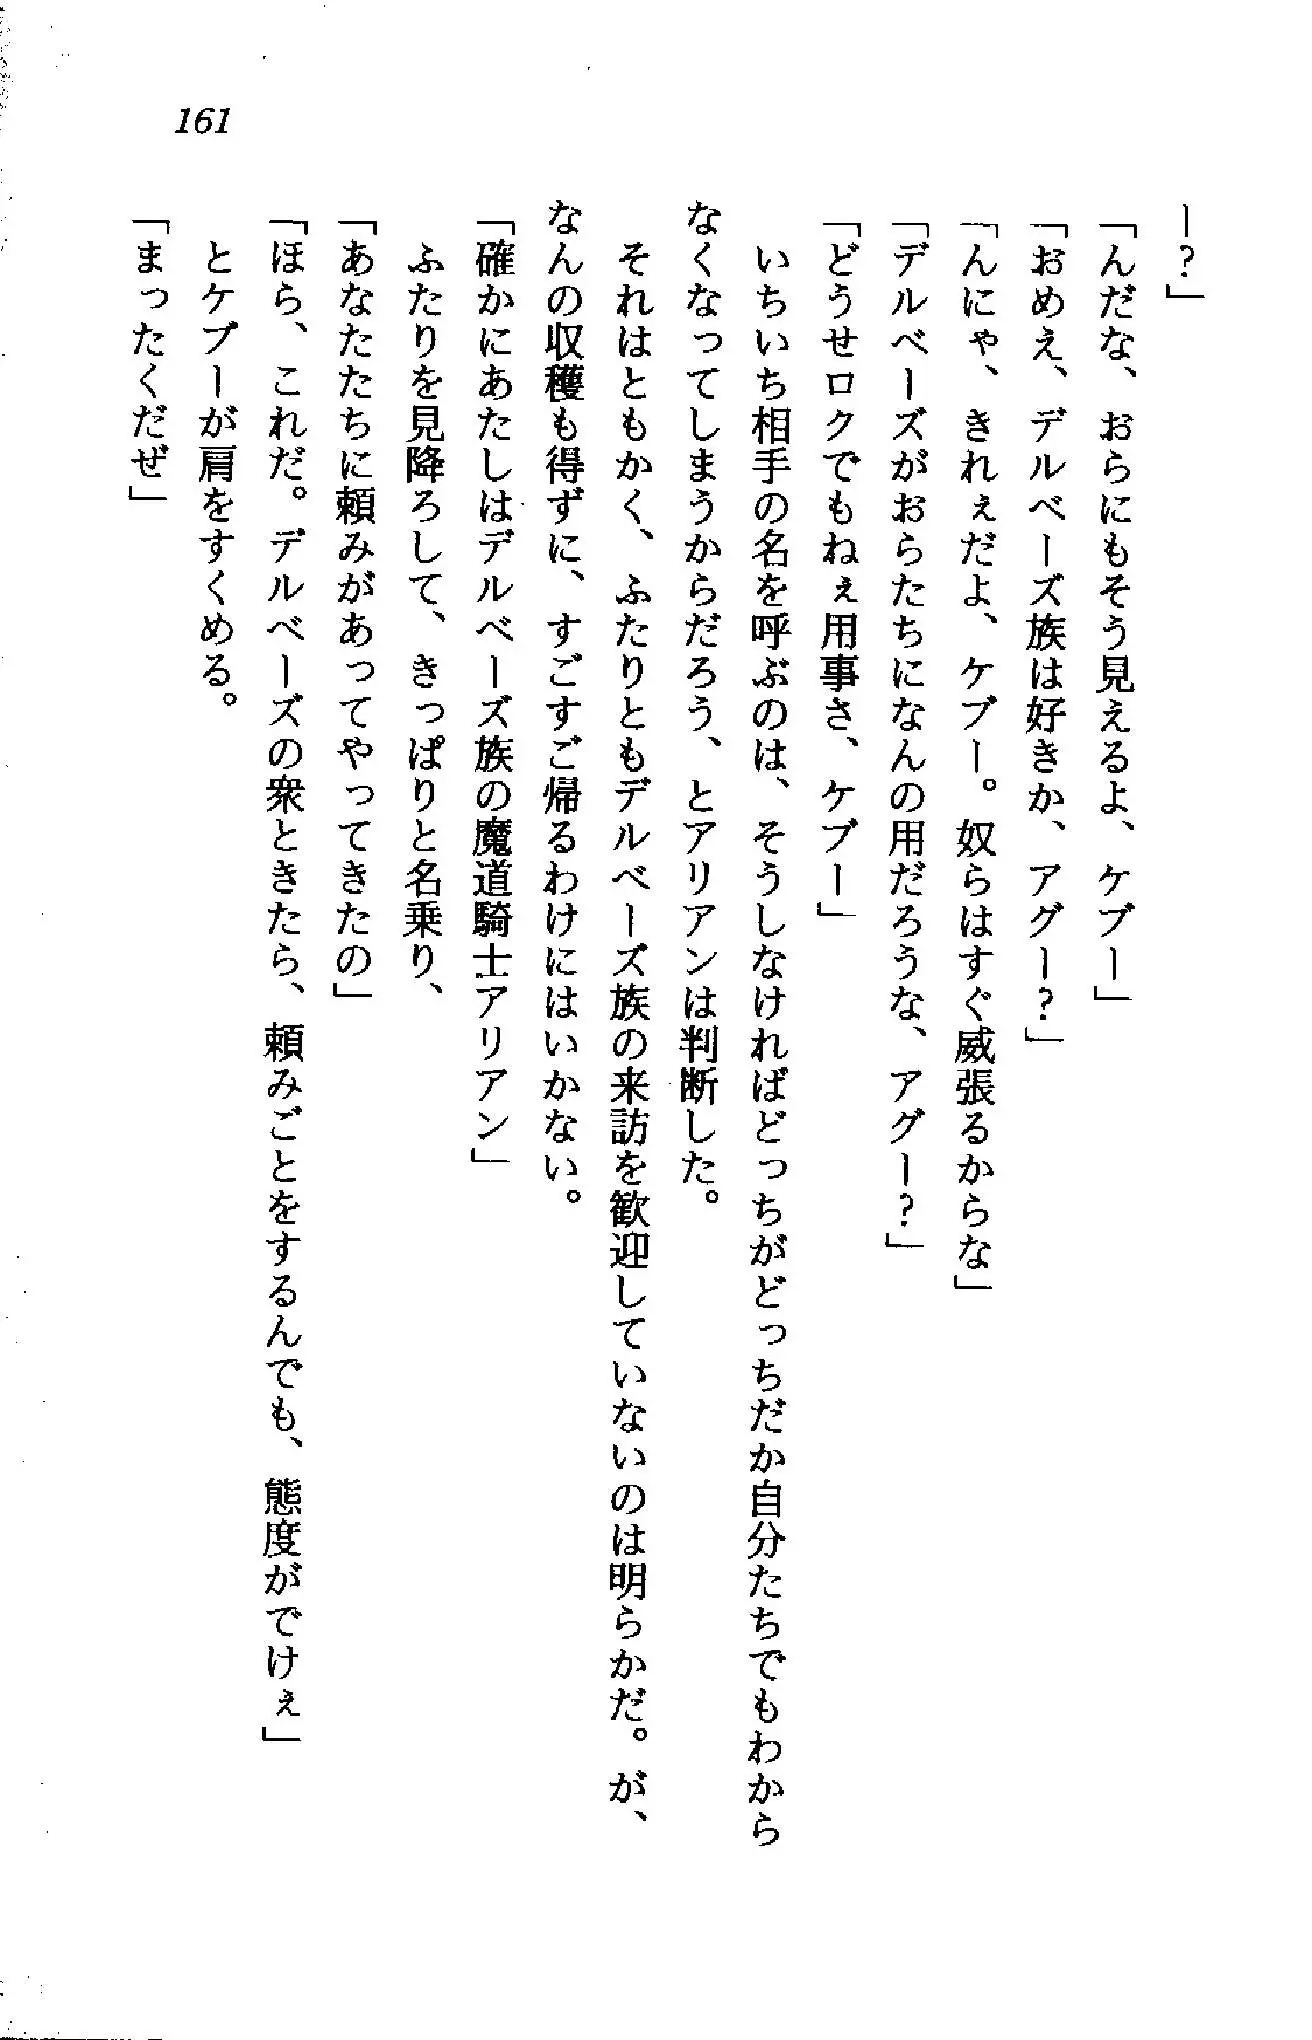 161
ー？」
「んだな、おらにもそう見えるよ、ケブー」
「おめえ、デルベーズ族は好きか、アグー？」
「んにゃ、きれぇだよ、ケブー。奴らはすぐ威張るからな」
「デルベーズがおらたちになんの用だろうな、アグー？」
「どうせロクでもねぇ用事さ、ケブー」
　いちいち相手の名を呼ぶのは、そうしなければどっちがどっちだか自分たちでもわから
なくなってしまうからだろう、とアリアンは判断した。
　それはともかく、ふたりともデルベーズ族の来訪を歓迎していないのは明らかだ。が、
なんの収穫も得ずに、すごすご帰るわけにはいかない。
「確かにあたしはデルベーズ族の魔道騎士アリアン」
　ふたりを見降ろして、きっぱりと名乗り、
「あなたたちに頼みがあってやってきたの」
「ほら、これだ。デルベーズの衆ときたら、頼みごとをするんでも、態度がでけぇ」
　とケブーが肩をすくめる。
「まったくだぜ」